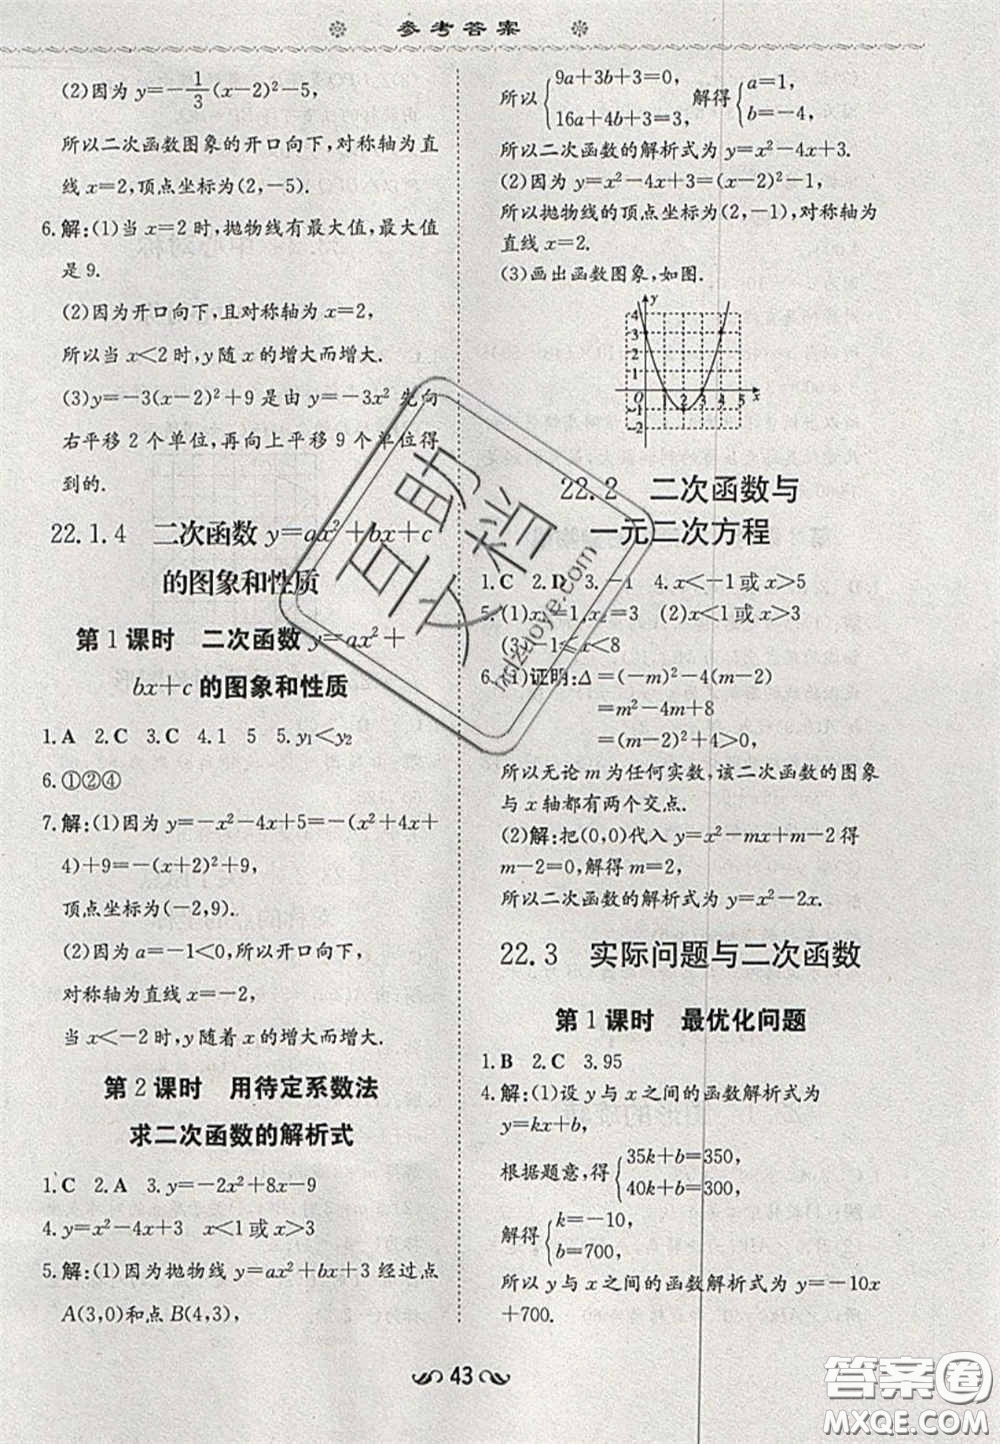 参考答案
(2)因为 y=-1/3(x-2)²-5,
所以二次函数图象的开口向下,对称轴为直
线 x=2,顶点坐标为(2,-5).
6.解:(1)当 x=2 时,抛物线有最大值,最大值
是 9.
(2)因为开口向下,且对称轴为 x=2,
所以当 x<2 时,y 随 x 的增大而增大.
(3)y=-3(x-2)²+9 是由 y=-3x² 先向
右平移 2 个单位,再向上平移 9 个单位得
到的.
22.1.4 二次函数 y=ax²+bx+c
的图象和性质
第 1 课时 二次函数 y=ax²+
bx+c 的图象和性质
1.A 2.C 3.C 4.1 5 5.y₁<y₂
6.①②④
7.解:(1)因为 y=-x²-4x+5=-(x²+4x+
4)+9=-(x+2)²+9,
顶点坐标为(-2,9).
(2)因为 a=-1<0,所以开口向下,
对称轴为直线 x=-2;
当 x<-2 时,y 随着 x 的增大而增大.
第 2 课时 用待定系数法
求二次函数的解析式
1.C 2.A 3.y=-2x²+8x-9
4.y=x²-4x+3 x<1 或 x>3
5.解:(1)因为抛物线 y=ax²+bx+3 经过点
A(3,0)和点 B(4,3),
所以{9a+3b+3=0, 16a+4b+3=3, 解得{a=1, b=-4,
所以二次函数的解析式为 y=x²-4x+3.
(2)因为 y=x²-4x+3=(x-2)²-1,
所以抛物线的顶点坐标为(2,-1),对称轴为
直线 x=2.
(3)画出函数图象,如图.
y
4
3
2
1
O 1 2 3 4 5 x
-1
-2
22.2 二次函数与
一元二次方程
1.C 2.D 3.-1 4.x<-1 或 x>5
5.(1)x₁=1,x₂=3 (2)x<1 或 x>3
(3)-1≤x≤8
6.(1)证明:Δ=(-m)²-4(m-2)
=m²-4m+8
=(m-2)²+4>0,
所以无论 m 为任何实数,该二次函数的图象
与 x 轴都有两个交点.
(2)解:把(0,0)代入 y=x²-mx+m-2 得
m-2=0,解得 m=2,
所以二次函数的解析式为 y=x²-2x.
22.3 实际问题与二次函数
第 1 课时 最优化问题
1.B 2.C 3.95
4.解:(1)设 y 与 x 之间的函数解析式为
y=kx+b,
根据题意,得{35k+b=350, 40k+b=300,
解得{k=-10, b=700,
所以 y 与 x 之间的函数解析式为 y=-10x
+700.
43
互助文档
mxlzuoye.com
答案圈
MXQE.COM